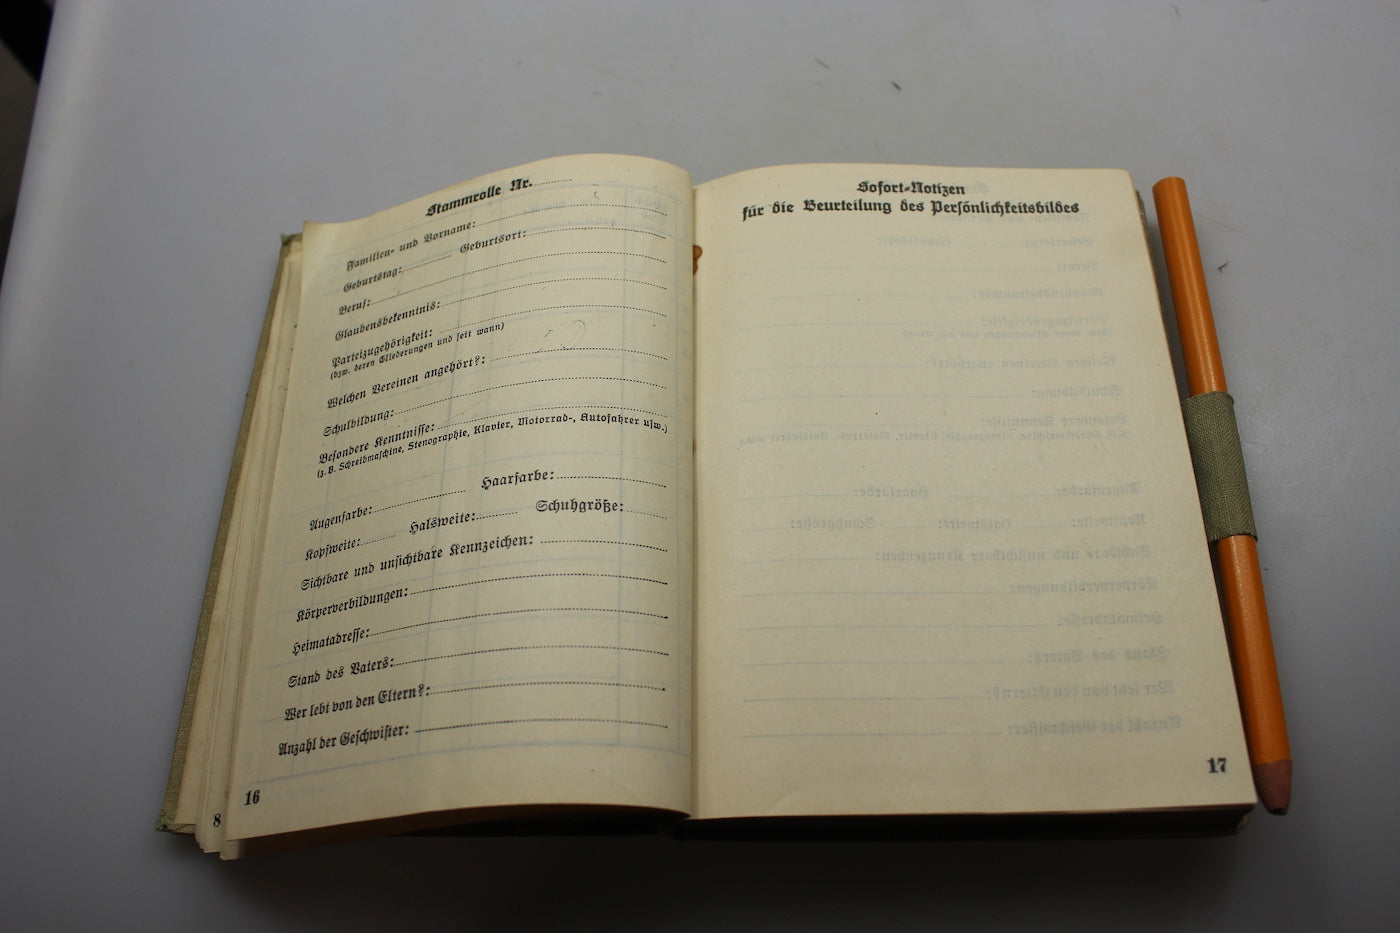 Stammrolle Nr.
Familien- und Vorname:
Geburtstag: Geburtsort:
Beruf:
Glaubensbekenntnis:
Parteizugehörigkeit:
(bzw. deren Gliederungen und seit wann)
Welchen Vereinen angehört?:
Schulbildung:
Besondere Kenntnisse:
(z. B. Schreibmaschine, Stenographie, Klavier, Motorrad-, Autofahrer usw.)
Augenfarbe: Haarfarbe:
Kopfweite: Halsweite: Schuhgröße:
Sichtbare und unsichtbare Kennzeichen:
Körperverbildungen:
Heimatadresse:
Stand des Vaters:
Wer lebt von den Eltern?:
Anzahl der Geschwister:
16
8
Sofort-Notizen
für die Beurteilung des Persönlichkeitsbildes
17